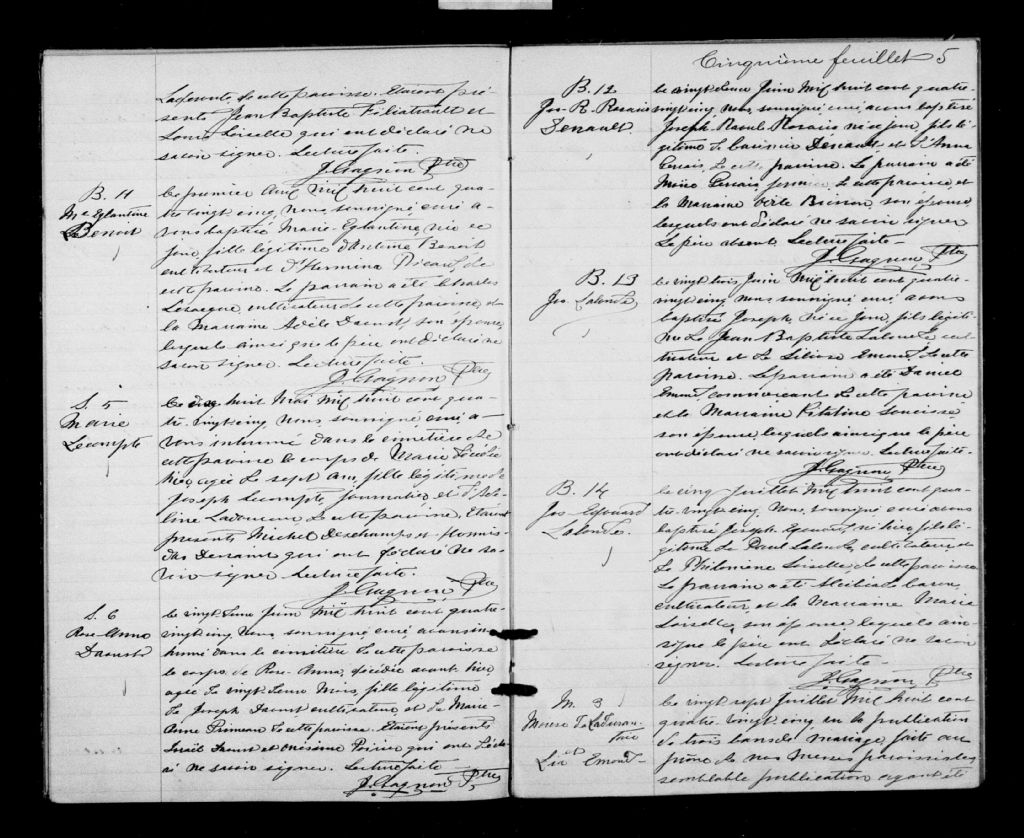 Laferonte, de cette paroisse. Etaient pré-
sents Jean Baptiste Filiatrault et
Louis Loiselle qui ont déclaré ne
savoir signer. Lecture faite.
J. Gagnon Ptre
B. 11
Mie Eglantine
Benoit
Le premier Avril mil huit cent qua-
tre vingt cinq, nous, soussigné curé a-
vons baptisé Marie-Eglantine, née ce
jour, fille légitime d'Antoine Benoit
cultivateur et d'Hermina Picard, de
cette paroisse. Le parrain a été Charles
cultivateur de cette paroisse, et
la Marraine Adèle Daoust, son épouse,
lesquels ainsi que le père ont déclaré ne
savoir signer. Lecture faite.
J. Gagnon Ptre
S. 5
Marie
Lecompte
Le dix huit Mai mil huit cent qua-
tre-vingt cinq Nous, soussigné, curé a-
vons inhumé dans le cimetière de
cette paroisse le corps de Marie décédée
hier, agée de sept ans, fille légitime de
Joseph Lecompte, journalier, et d'
Ladouceur de cette paroisse, Etaient
présents Michel Deschamps et Hormis-
das Denault qui ont déclaré ne sa-
voir signer Lecture faite.
J. Gagnon Ptre
S. 6
Rose-Anna
Daoust
Le vingt deux Juin mil huit cent quatre-
vingt cinq Nous, soussigné curé avons in-
humé dans le cimetière de cette paroisse
le corps de Rose-Anna, décédée avant hier,
agée de vingt deux Mois, fille légitime
de Joseph Daoust cultivateur et de Marie-
Anne Primeau de cette paroisse. Etaient présents
Israël Daoust et Onésime Poirier qui ont décla-
ré ne savoir signer. Lecture faite
J. Gagnon Ptre
Cinquième feuillet 5
B. 12
Jos. R. Rosario
Denault
Le vingt deux Juin mil huit cent quatre
vingt cinq, nous, soussigné curé avons baptisé
Joseph Raoul Rosario né ce jour, fils lé-
gitime de Casimir Denault et d'Anna
Gervais, de cette paroisse. Le parrain a été
Moïse Gervais fermier, de cette paroisse, et
la Marraine son épouse,
lesquels ont déclaré ne savoir signer
Le père absent. Lecture faite -
J. Gagnon, Ptre
B. 13
Jos. Lalonde
Le vingt trois Juin mil huit cent quatre-
vingt cinq, Nous soussigné curé avons
baptisé Joseph, né ce jour, fils légiti-
me de Jean Baptiste Lalonde cul-
tivateur et de Emond, de cette
paroisse. Le parrain a été Daniel
Emond commerçant de cette paroisse
et la Marraine
son épouse, lesquels ainsi que le père
ont déclaré ne savoir signer. Lecture faite-
J. Gagnon Ptre
B. 14
Jos Edouard
Lalonde.
Le cinq Juillet mil huit cent qua-
tre-vingt cinq, Nous, soussigné curé avons
baptisé Joseph Edouard, né hier, fils lé-
gitime de Paul Lalonde, cultivateur, et
de Philomène Loiselle, de cette paroisse
Le parrain a été
cultivateur, et la Marraine Marie
Loiselle, son épouse lesquels ain-
si que le père ont déclaré ne savoir
signer. Lecture faite -
J. Gagnon Ptre
M. 3
&
Lia Emond-
Le vingt sept Juillet mil huit cent
quatre-vingt cinq vu la publication
de trois bans de mariage, faite au
prône de nos Messes paroissiales
semblable publication ayant été